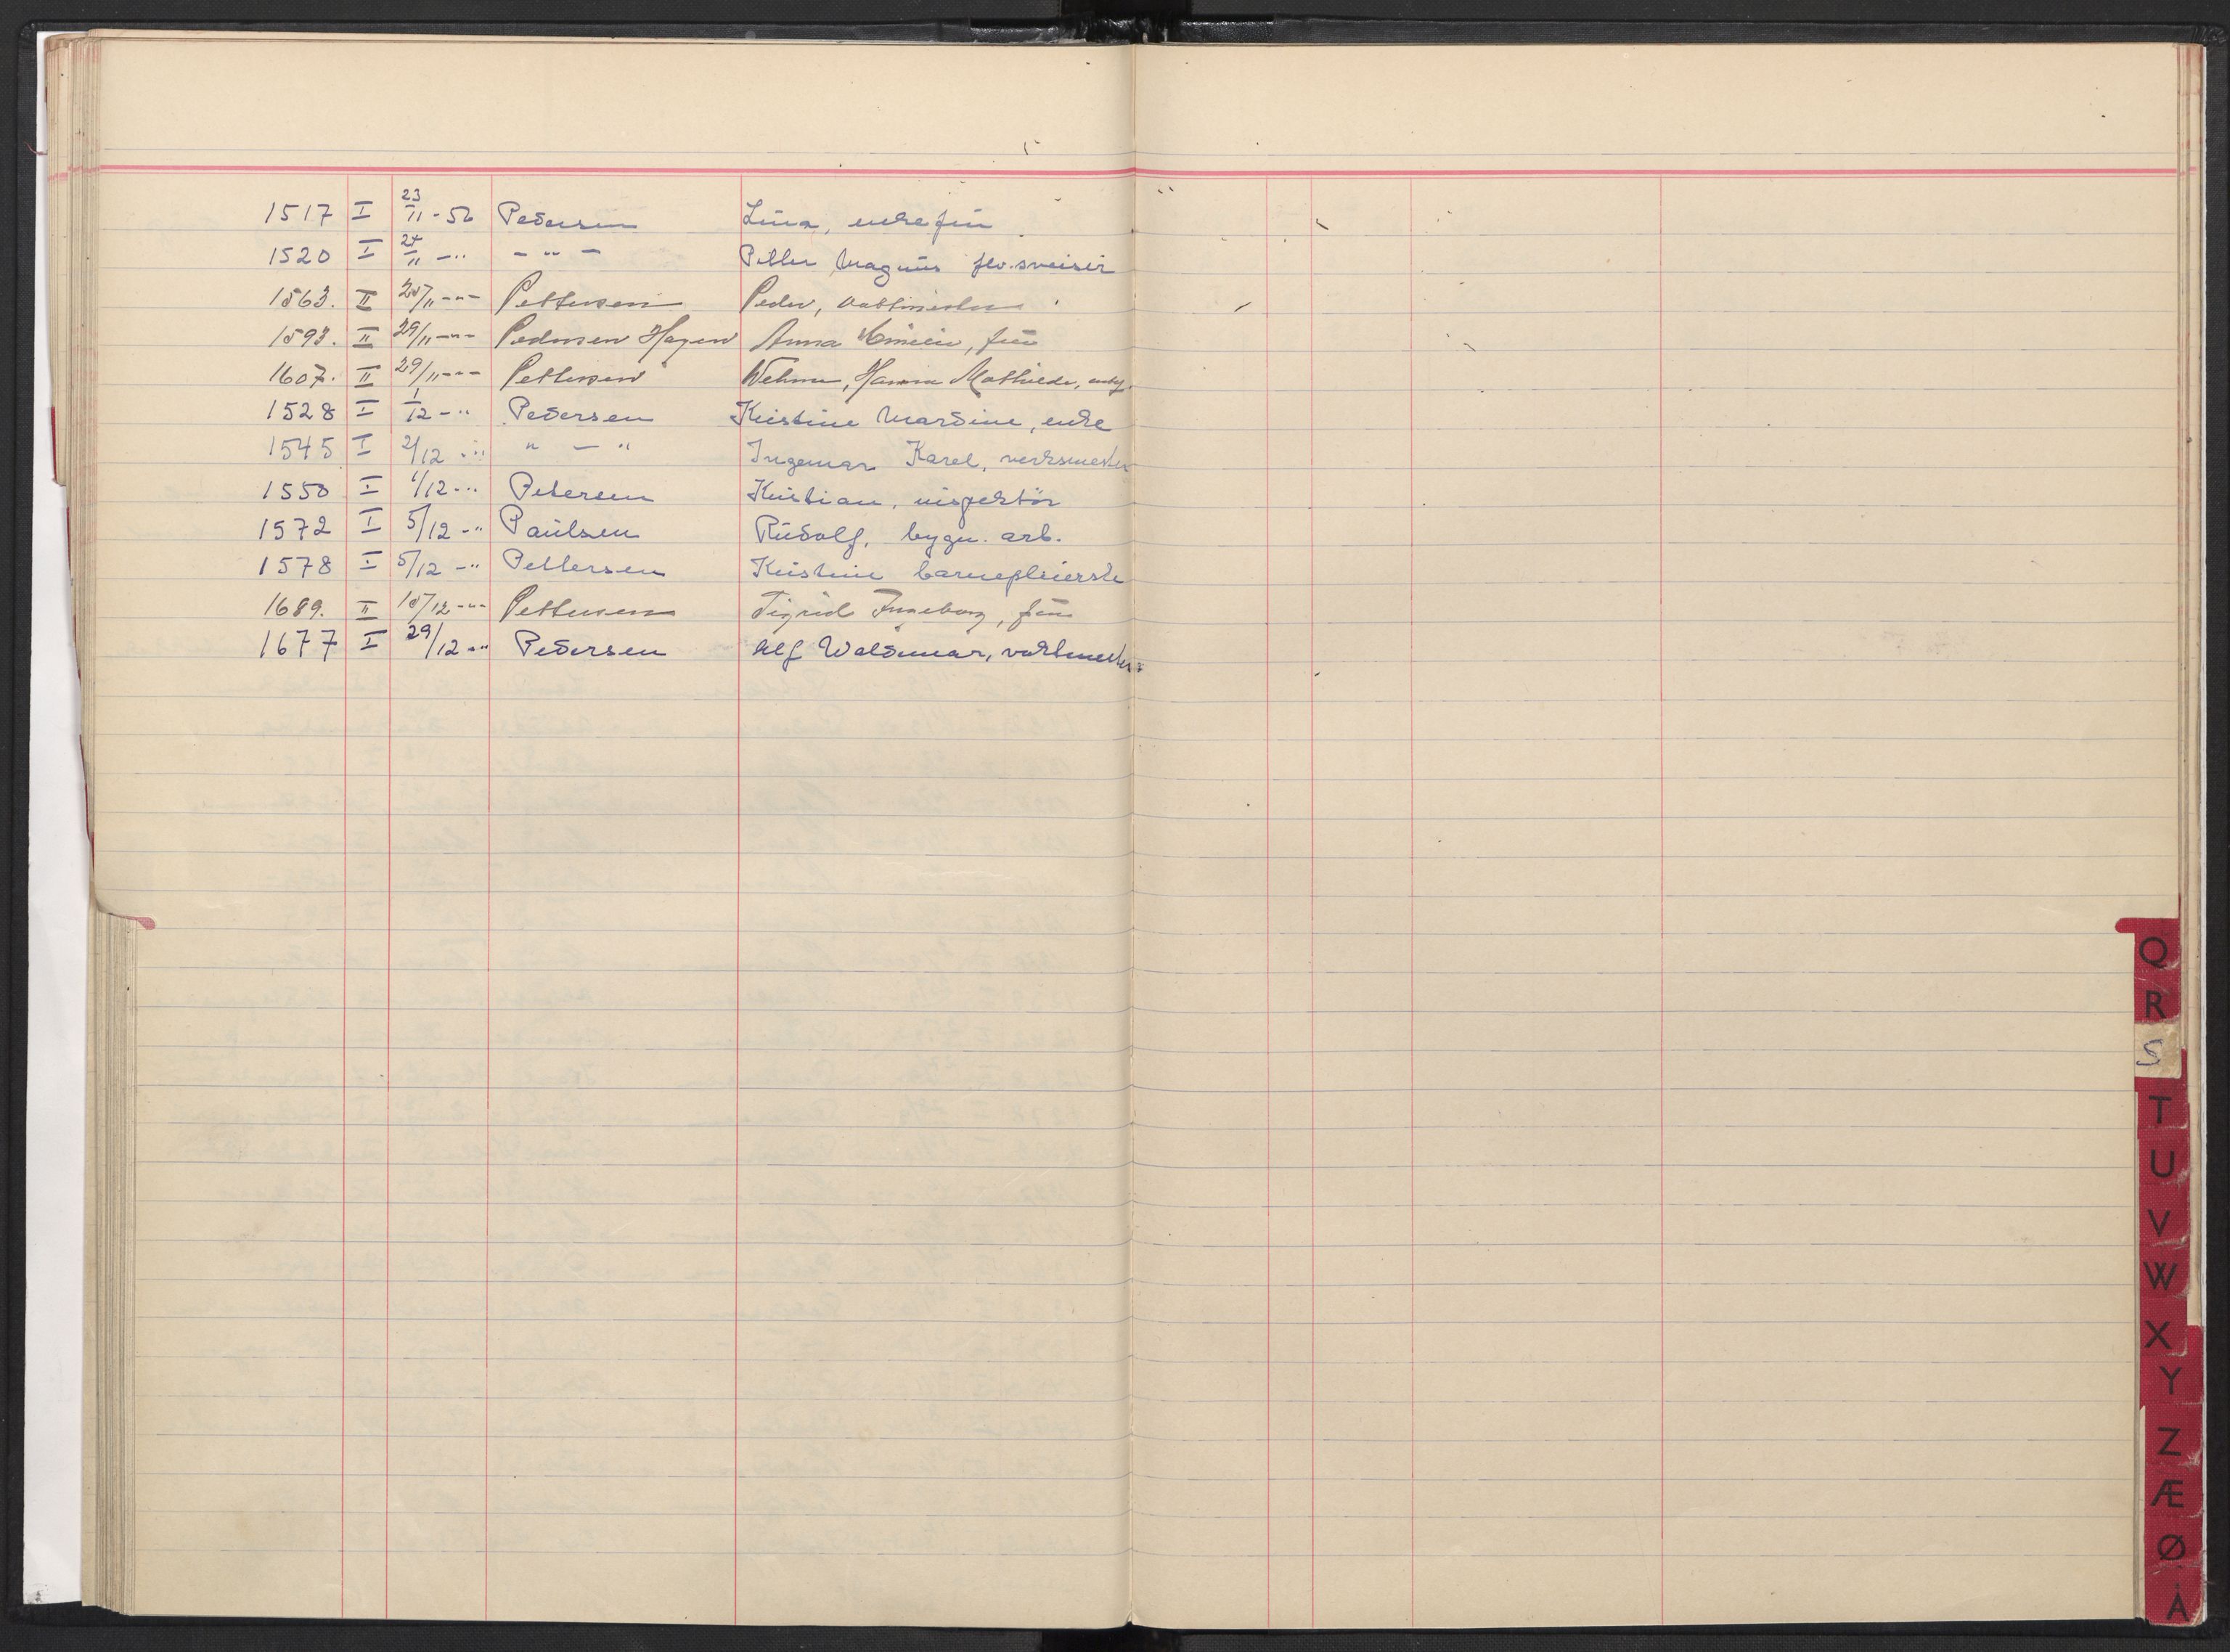 1517 I 23/11-56 Pedersen Lina, enkefru
1520 I 24/11 -" - " - Petter Magnus flv.sveiser
1563. II 20/11 -"- Pettersen Peder, vaktmester
1593. II 29/11 -"- Pedersen Hagen Anna Emilie, frue
1607. II 29/11 -"- Pettersen Hanna Mathilde,
1528 I 1/12 -" Pedersen Kristine Mardine, enke
1545 I 2/12 -" " - " Ingemar Karel, verksmester
1550 I 1/12 -" Petersen Kristian, inspektör
1572 I 5/12 -" Paulsen Rudolf, bygn. arb.
1578 I 5/12 -" Pettersen Kristine barnepleierske
1689. II 10/12 -"- Pettersen Sigrid Ingeborg, frue
1677 I 29/12 -" Pedersen Alf Waldemar, vaktmester
Q
R
S
T
U
V
W
X
Y
Z
Æ
Ø
Å